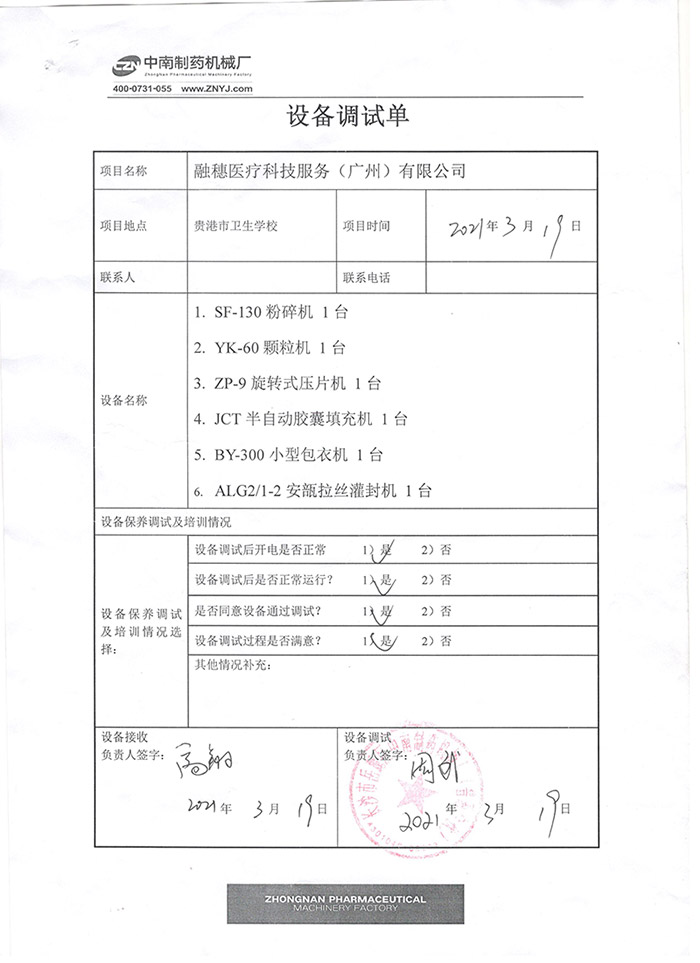 CZN 中南制药机械厂
Zhongnan Pharmaceutical Machinery Factory
400-0731-055 www.ZNYJ.com
设备调试单
项目名称 融穗医疗科技服务（广州）有限公司
项目地点 贵港市卫生学校 项目时间 2021年3月19日
联系人 联系电话
设备名称
1. SF-130 粉碎机 1 台
2. YK-60 颗粒机 1 台
3. ZP-9 旋转式压片机 1 台
4. JCT 半自动胶囊填充机 1 台
5. BY-300 小型包衣机 1 台
6. ALG2/1-2 安瓿拉丝灌封机 1 台
设备保养调试及培训情况
设备保养调试及培训情况选择：
设备调试后开电是否正常 1）是 2）否
设备调试后是否正常运行？ 1）是 2）否
是否同意设备通过调试？ 1）是 2）否
设备调试过程是否满意？ 1）是 2）否
其他情况补充：
设备接收
负责人签字：高翔
2021年3月19日
设备调试
负责人签字：周武
2021年3月19日
ZHONGNAN PHARMACEUTICAL
MACHINERY FACTORY